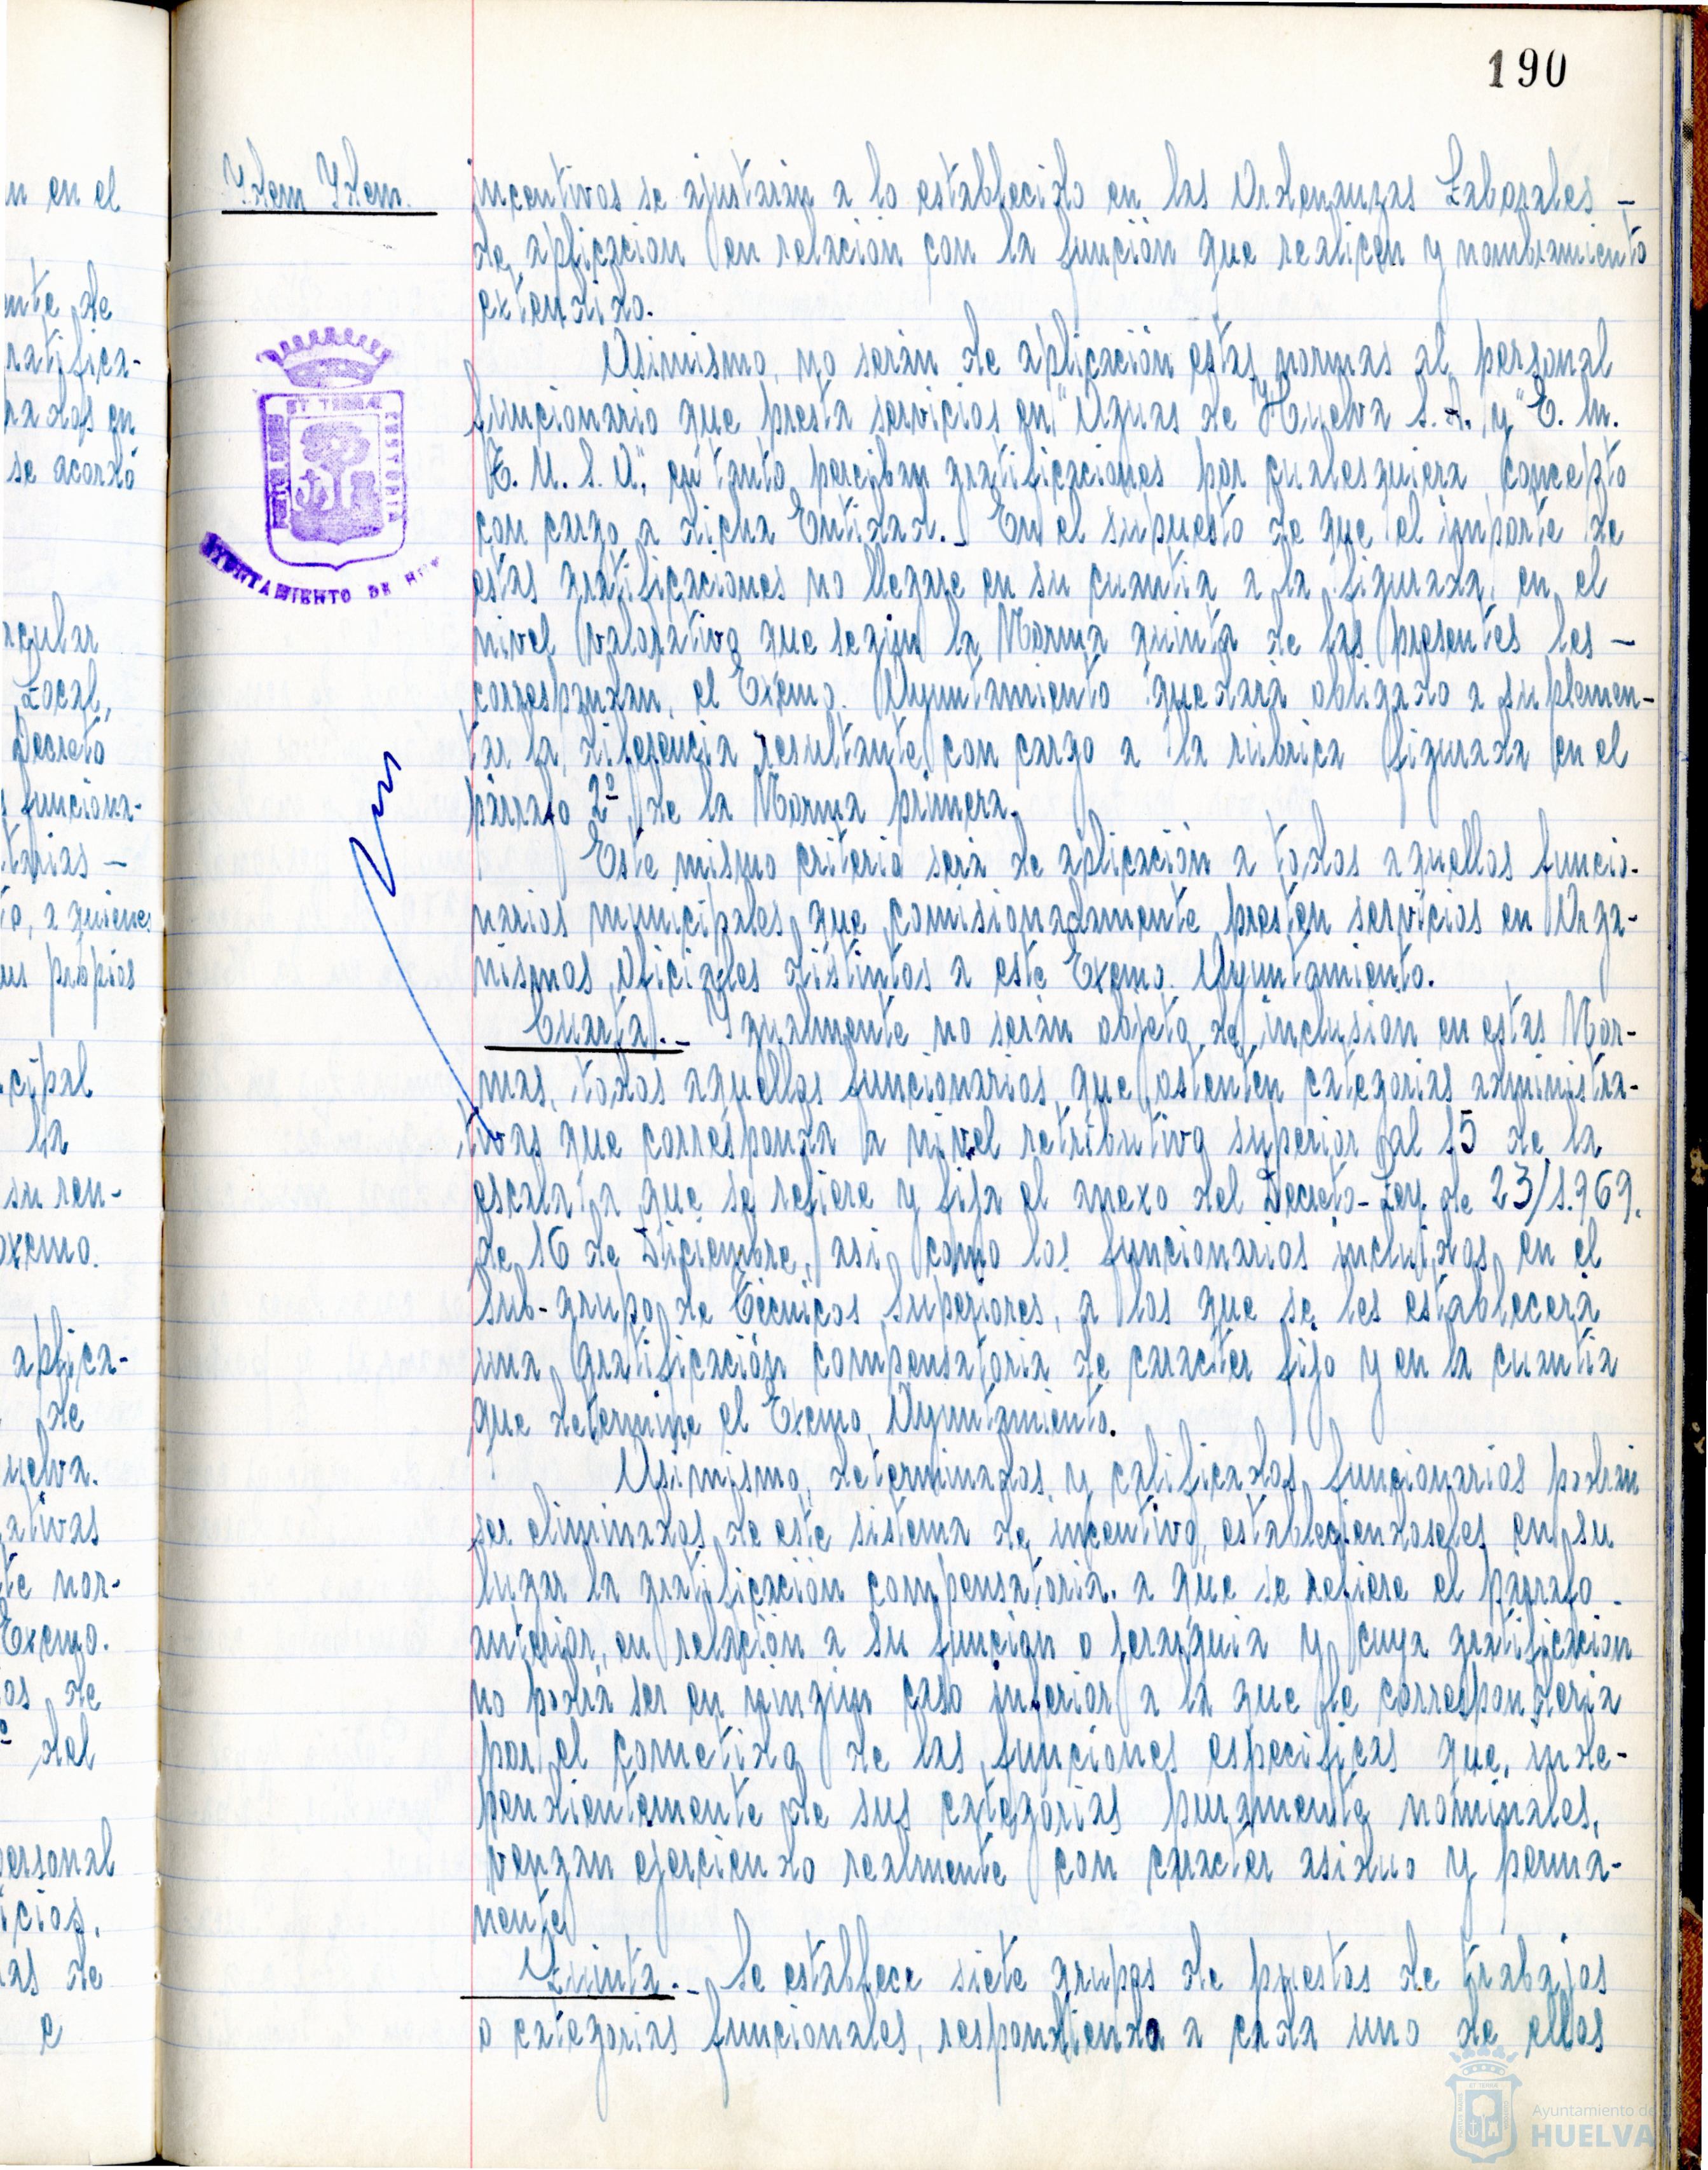 190
Idem Idem.
incentivos se ajustarán a lo establecido en las Ordenanzas Laborales -
de aplicación en relación con la función que realicen y nombramiento
extendido.
Asimismo, no serán de aplicación estas normas al personal
funcionario que presta servicios en "Aguas de Huelva S.A. y "E. M.
T. U. S. A.", en tanto perciban gratificaciones por cualesquiera concepto
con cargo a dicha Entidad.- En el supuesto de que el importe de
estas gratificaciones no llegare en su cuantía a la figurada en el
nivel valorativo que según la Norma quinta de las presentes les -
correspondan, el Excmo. Ayuntamiento quedará obligado a suplemen-
tar la diferencia resultante con cargo a la rúbrica figurada en el
párrafo 2º de la Norma primera.
Este mismo criterio será de aplicación a todos aquellos funcio-
narios municipales que comisionadamente presten servicios en Orga-
nismos Oficiales distintos a este Excmo. Ayuntamiento.
Cuarta.- Igualmente no serán objeto de inclusión en estas Nor-
mas, todos aquellos funcionarios que ostenten categorías administra-
tivas que corresponda a nivel retributivo superior al 15 de la
escala a que se refiere y fija el anexo del Decreto-Ley de 23/1.969.
de 16 de Diciembre, asi como los funcionarios incluidos en el
Sub-grupo de Técnicos Superiores, a los que se les establecerá
una gratificación compensatoria de carácter fijo y en la cuantía
que determine el Excmo. Ayuntamiento.
Asimismo, determinados y calificados funcionarios podrán
ser eliminados de este sistema de incentivo, estableciendoseles en su
lugar la gratificación compensatoria a que se refiere el párrafo -
anterior, en relación a su función o jerarquía y cuya gratificación
no podrá ser en ningún caso inferior a la que le correspondería
por el cometido de las funciones específicas que, inde-
pendientemente de sus categorías puramente nominales,
vengan ejerciendo realmente con carácter asiduo y perma-
nente.
Quinta.- Se establece siete grupos de puestos de trabajos
o categorías funcionales, respondiendo a cada uno de ellos
ET TERRÆ
AYUNTAMIENTO DE
n en el
nte de
ratifica-
rados en
se acordó
Local,
Decreto
funciona-
tarias -
to, a quienes
us propios
cipal
la
su ren-
aplica-
de
uelva.
ativas
te nor-
Excmo.
os de
del
personal
icios.
as de
e
Ayuntamiento de
HUELVA